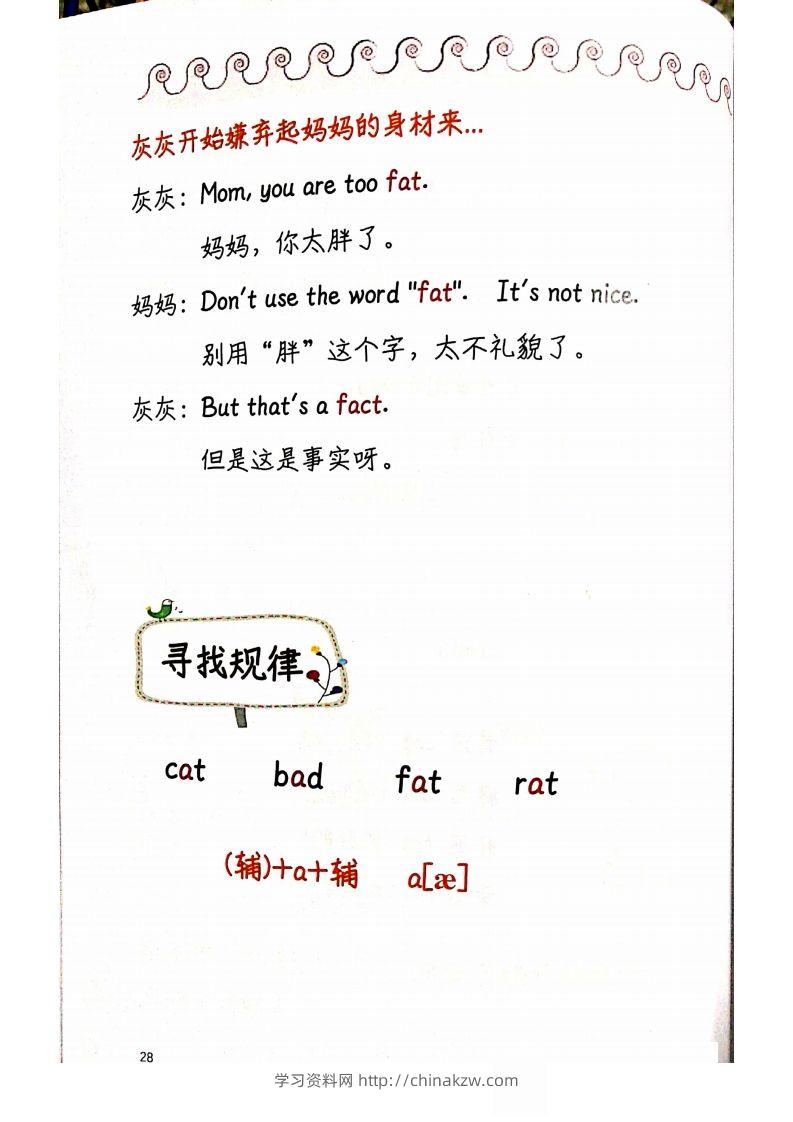 灰灰开始嫌弃起妈妈的身材来...
灰灰：Mom, you are too fat.
妈妈，你太胖了。
妈妈：Don't use the word "fat". It's not nice.
别用“胖”这个字，太不礼貌了。
灰灰：But that's a fact.
但是这是事实呀。
寻找规律
cat bad fat rat
(辅)+a+辅 a[æ]
28
学习资料网 http://chinakzw.com